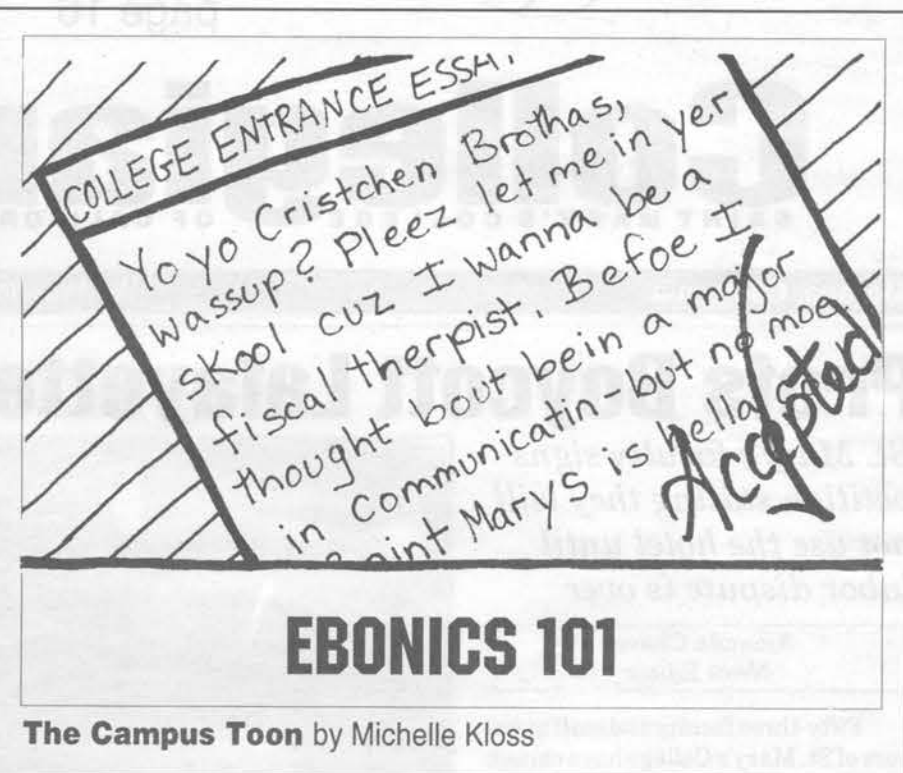 page 16
Collegian
COLLEGE ENTRANCE ESSA.
Yo yo Cristchen Brothas,
wassup? Pleez let me in yer
skool cuz I wanna be a
fiscal therpist. Befoe I
thought bout bein a major
in communicatin but no moe.
Saint Mary's is hella
Accepted
EBONICS 101
The Campus Toon by Michelle Kloss